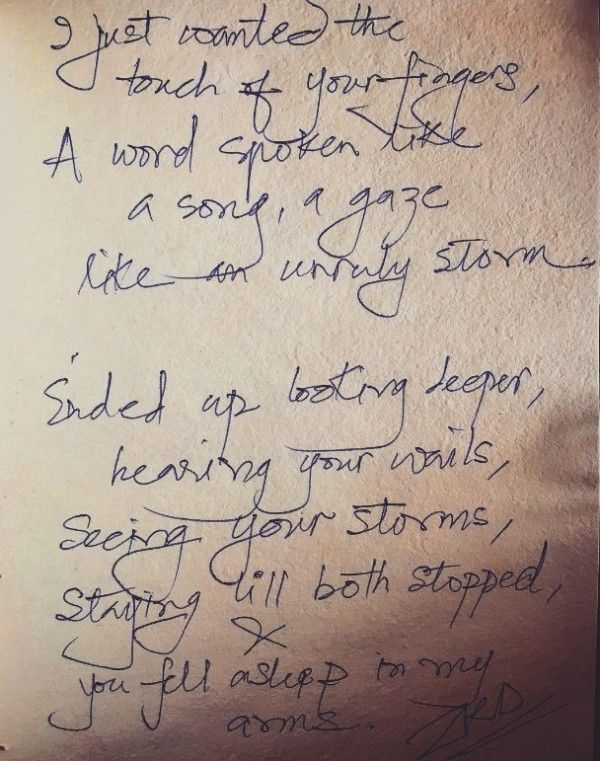 I just wanted the
touch of your fingers,
A word spoken like
a song, a gaze
like an unruly storm.
Ended up looking deeper,
hearing your wails,
Seeing your storms,
Staying till both stopped,
&
you fell asleep in my
arms.